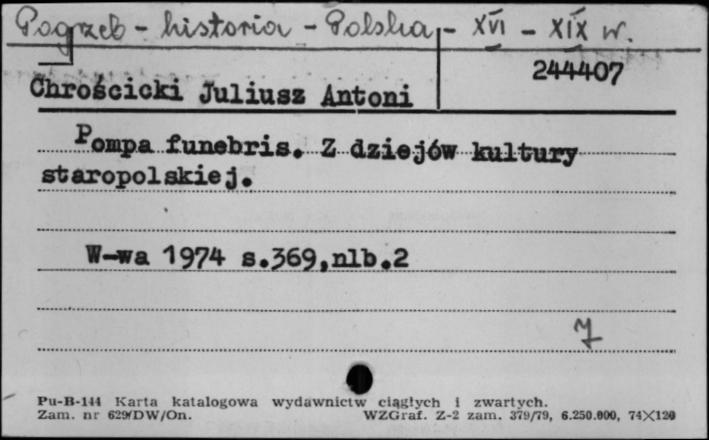 Pogrzeb - historia - Polska - XVI - XIX w.
244407
Chrościcki Juliusz Antoni
Pompa funebris. Z dziejów kultury
staropolskiej.
W-wa 1974 s.369,nlb.2
Pu-B-144 Karta katalogowa wydawnictw ciągłych i zwartych.
Zam. nr 629/DW/On. WZGraf. Z-2 zam. 379/79, 6.250.000, 74X120